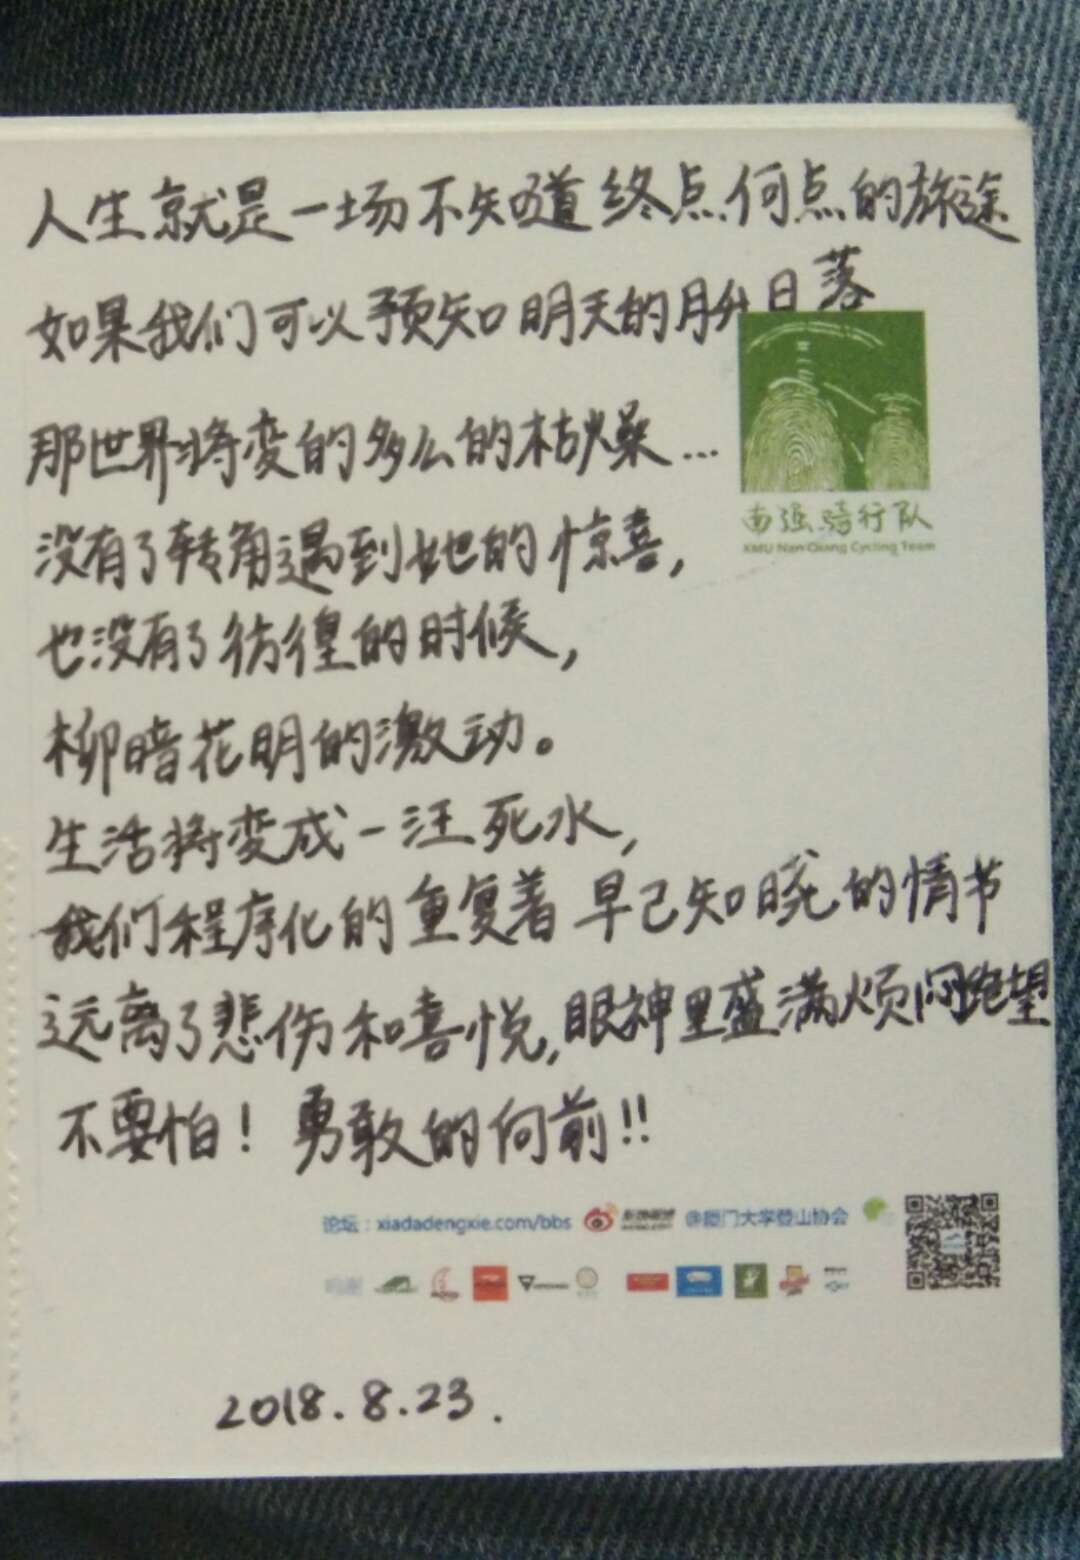 人生就是一场不知道终点何点的旅途
如果我们可以预知明天的月升日落
那世界将变的多么的枯燥…
南强骑行队
XMU Nan Qiang Cycling Team
没有了转角遇到她的惊喜，
也没有了彷徨的时候，
柳暗花明的激动。
生活将变成一汪死水，
我们程序化的重复着早已知晓的情节
远离了悲伤和喜悦，眼神里盛满烦闷绝望
不要怕！勇敢的向前!!
论坛：xiadadengxie.com/bbs @厦门大学登山协会
2018.8.23.